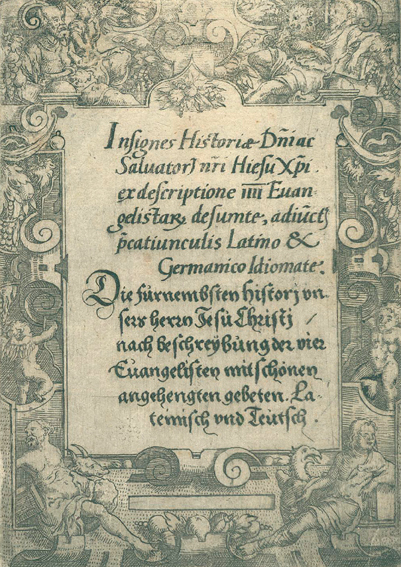 Insignes Historiæ Dn̄i ac
Salvatorȷ nr̄i Hiesu Xp̄i
ex descriptione iiii Evan-
gelistarꝫ desumte, adiūctȷ
p̄catiunculis Latino &
Germanico Idiomate.
Die fürnembsten historj vn
sers herrn Jesu Christj
nach beschreybung der vier
Euangelisten mit schönen
angehengten gebeten. La-
teinisch vnd Teutsch.